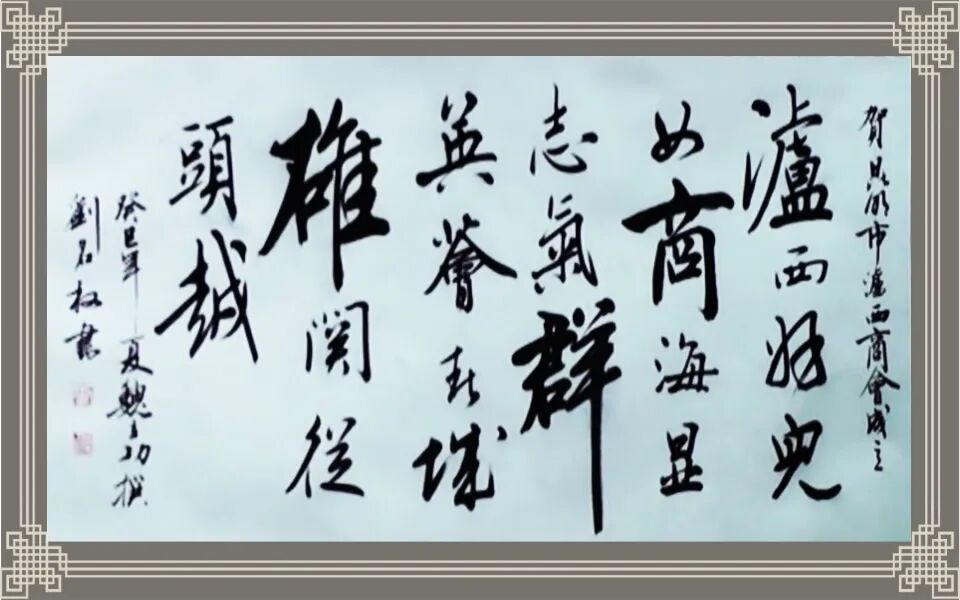 賀昆明市瀘西商會成立
瀘西好兒
女商海显
志氣群
英薈春城
雄関從
頭越
癸巳年夏魏功撰
劉权書